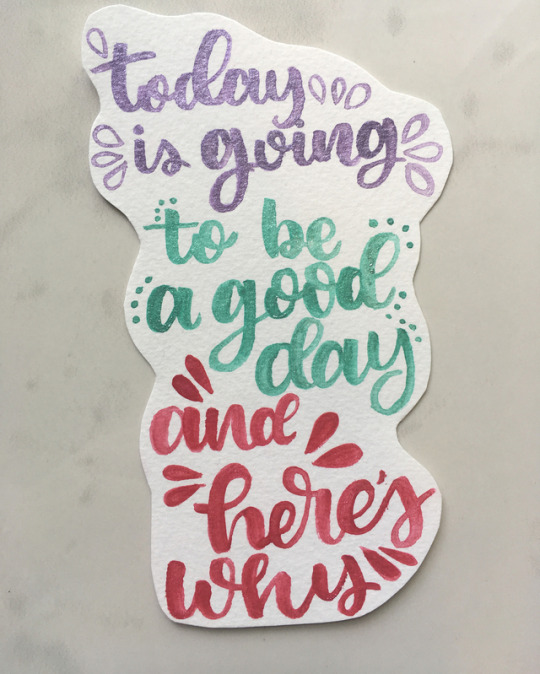 today
is going
to be
a good
day
and
here's
why